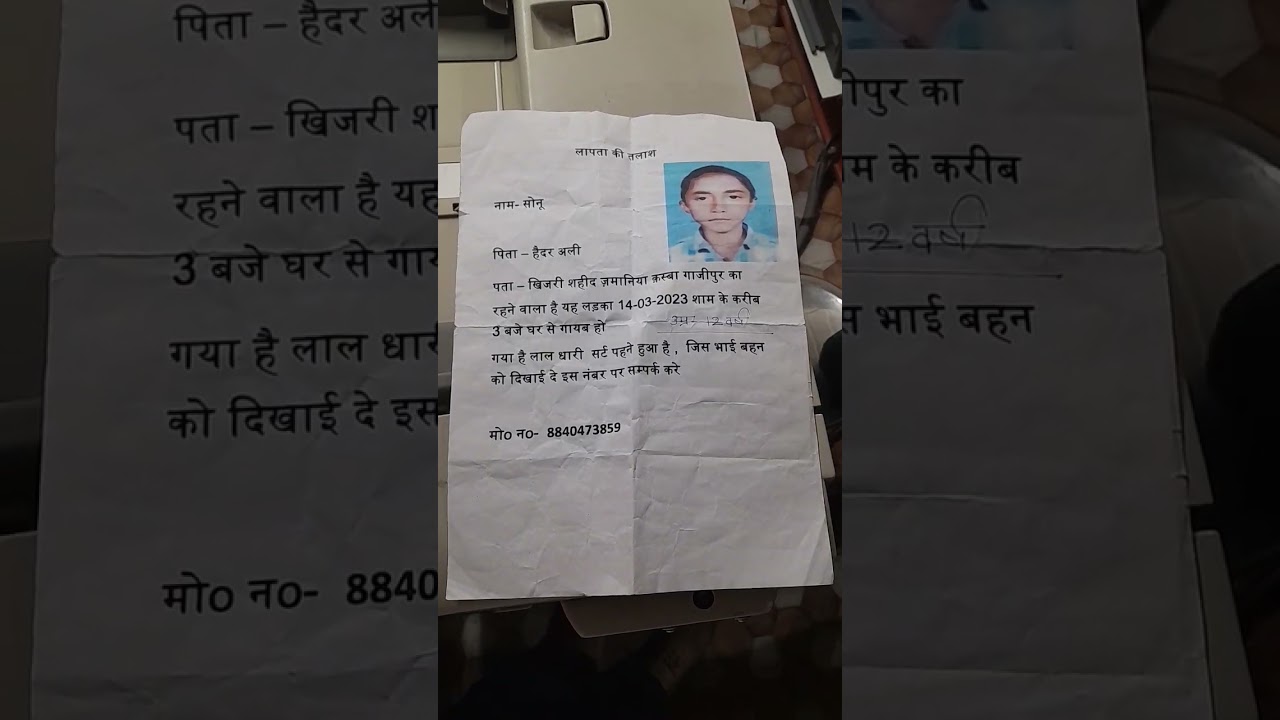 लापता की तलाश
नाम- सोनू
पिता – हैदर अली
पता – खिजरी शहीद ज़मानिया क़स्बा गाजीपुर का
रहने वाला है यह लड़का 14-03-2023 शाम के करीब
3 बजे घर से गायब हो उम्र: 12 वर्ष
गया है लाल धारी सर्ट पहने हुआ है , जिस भाई बहन
को दिखाई दे इस नंबर पर सम्पर्क करे
मो0 न0- 8840473859